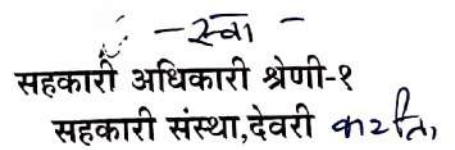 - स्वा -
सहकारी अधिकारी श्रेणी-१
सहकारी संस्था,देवरी करीता,